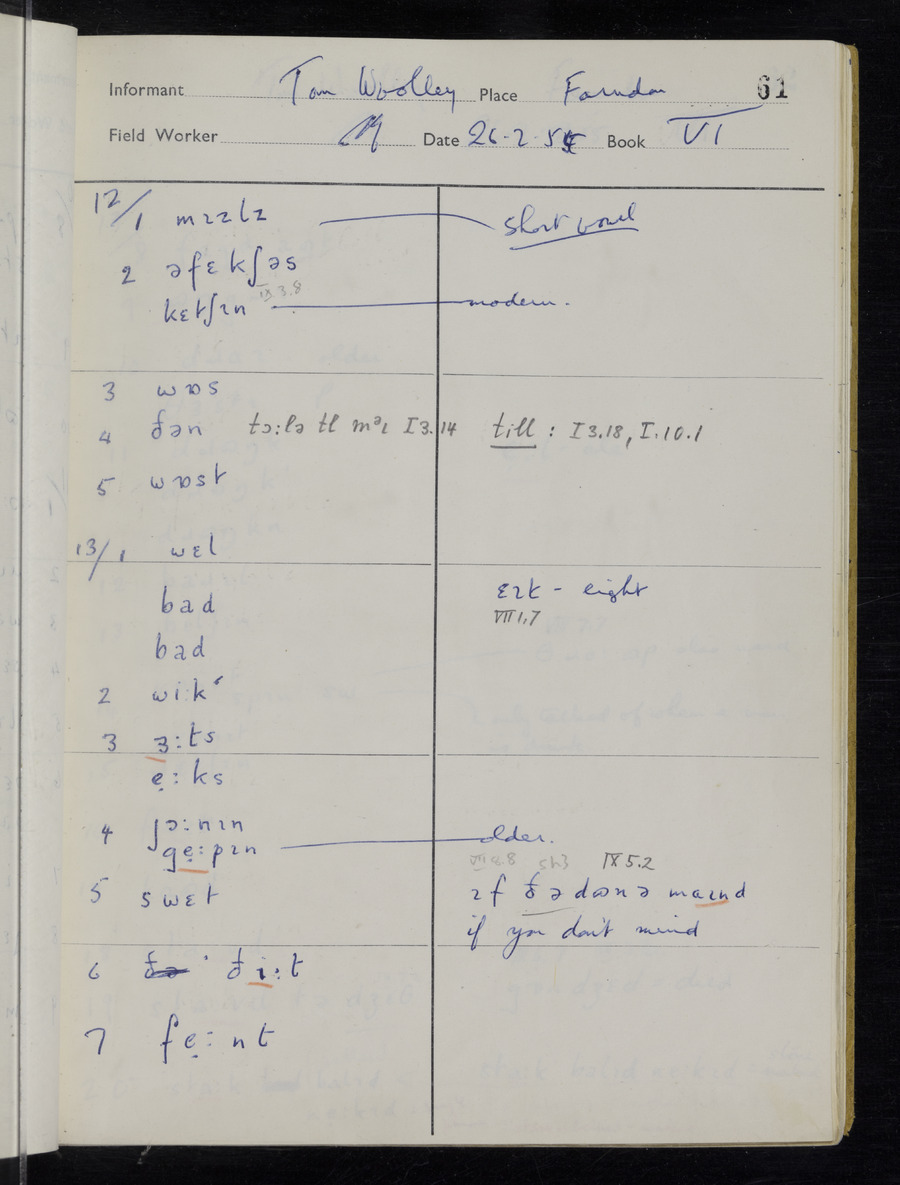 Informant Tom Woolley Place Farndon 61
Field Worker Date 26-2-54 Book VI
12/1 mɪzlz short vowel
2 əfɛkʃəs
kɛtʃɪn IX 3.8 modern.
3 wɒs
4 ðən tɔ:lə tl mᵊɪ I 3.14 till : I 3.18, I.10.1
5 wɒst
13/1 wɛl
bad ɛɪt - eight
VII 1.7
bad
2 wi:kˊ
3 ɜ:ts
ẹ:ks
4 ʃɔ:nɪn older.
gẹ:pɪn
VII 8.8 sh3 IX 5.2
5 swɛt ɪf ðə dəʊnə maɪnd
if you don't mind
6 ði:t
7 fẹ:nt